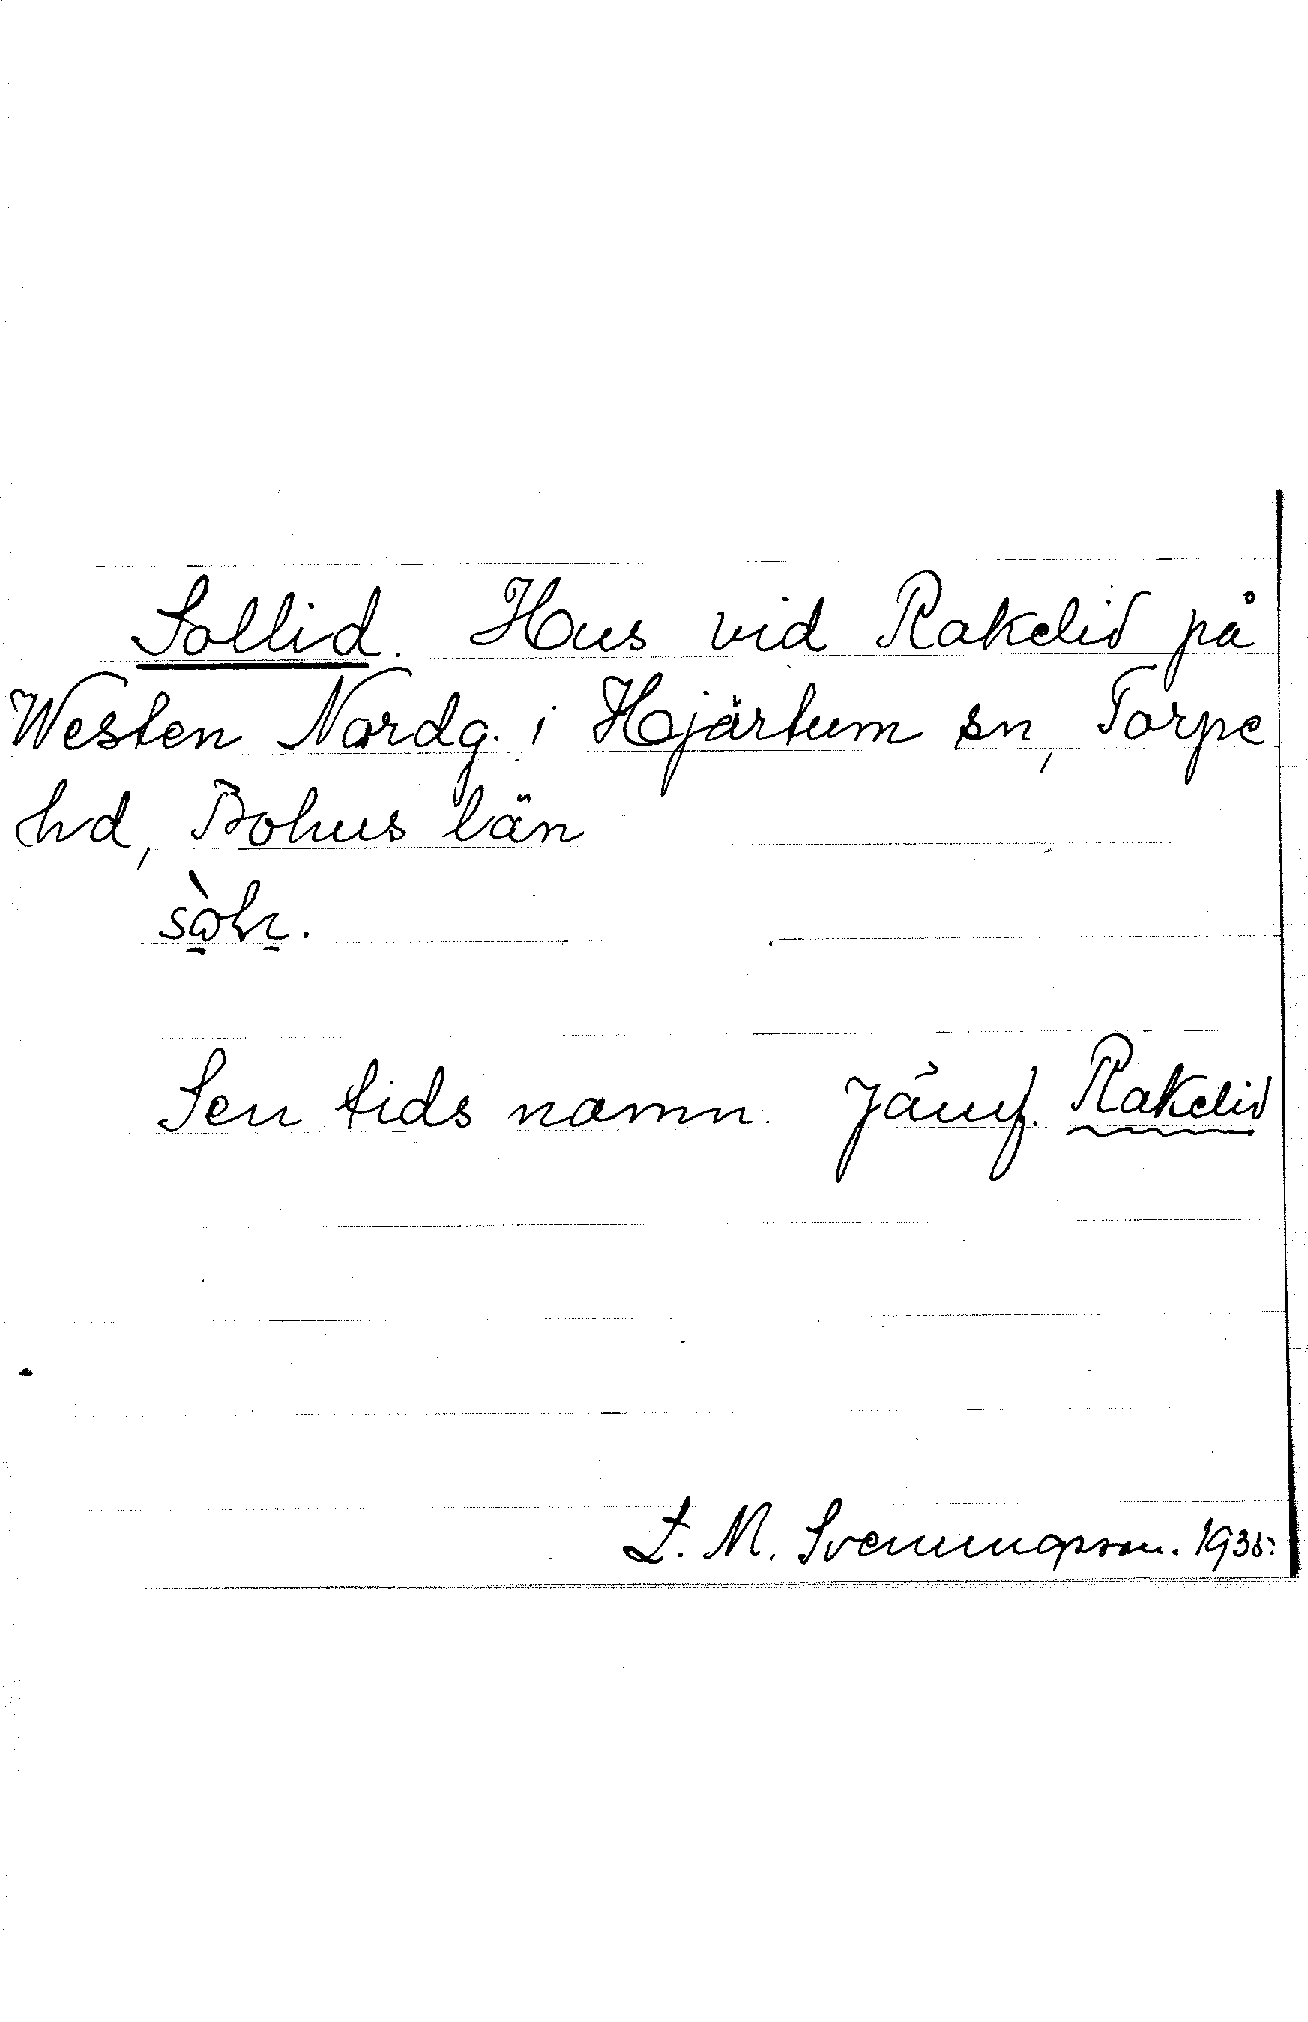 Sollid. Hus vid Rakelid på
Westen Nordg. i Hjärtum sn, Torpe
hd, Bohus län
Sen tids namn. Jämf. Rakelid
L. M. Svenungsson. 1935.